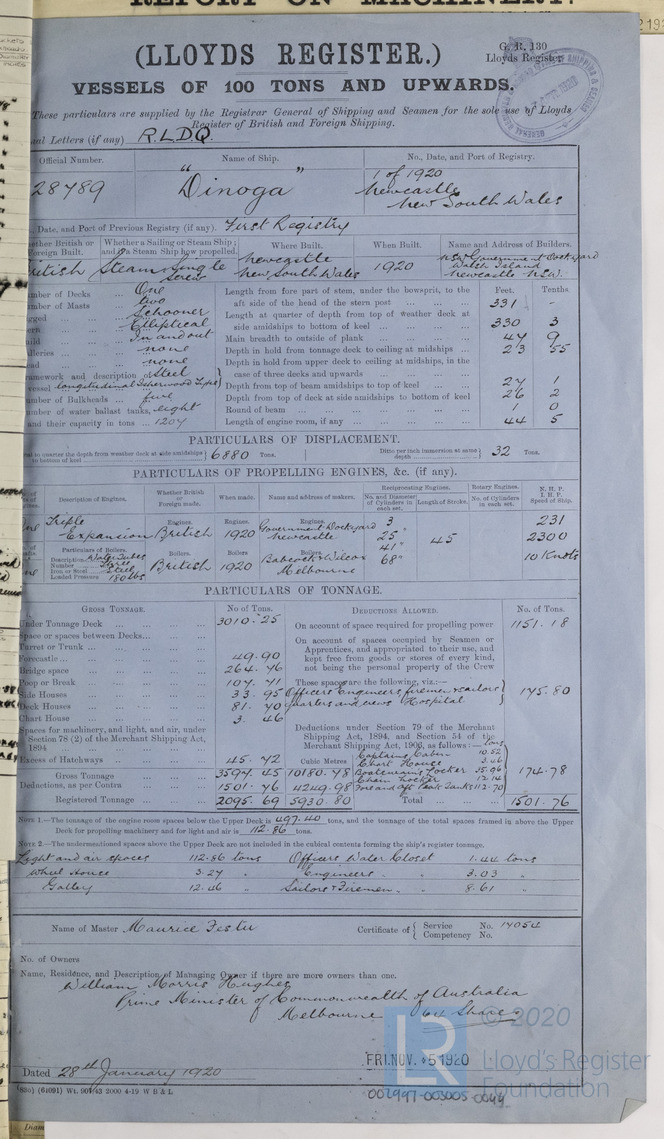 REPORT ON MACHINERY.
(LLOYDS REGISTER.)
G. R. 130
Lloyds Register
VESSELS OF 100 TONS AND UPWARDS.
These particulars are supplied by the Registrar General of Shipping and Seamen for the sole use of Lloyds
Register of British and Foreign Shipping.
nal Letters (if any) R.L.D.Q.
Official Number. Name of Ship. No., Date, and Port of Registry.
28789 "Dinoga" 1 of 1920
Newcastle
New South Wales
Date, and Port of Previous Registry (if any). First Registry
ether British or Foreign Built. Whether a Sailing or Steam Ship; and if a Steam Ship how propelled. Where Built. When Built. Name and Address of Builders.
ritish Steam Single Screw Newcastle New South Wales 1920 NSW Government Dockyard Walsh Island Newcastle N.S.W.
Feet. Tenths.
umber of Decks One
umber of Masts two
gged Schooner
ern Elliptical
uild In and out
lleries none
ead none
amework and description of vessel Steel longitudinal Isherwood Type
umber of Bulkheads five
umber of water ballast tanks, eight
and their capacity in tons 1207
Length from fore part of stem, under the bowsprit, to the aft side of the head of the stern post 331 -
Length at quarter of depth from top of weather deck at side amidships to bottom of keel 330 3
Main breadth to outside of plank 47 9
Depth in hold from tonnage deck to ceiling at midships 23 55
Depth in hold from upper deck to ceiling at midships, in the case of three decks and upwards
Depth from top of beam amidships to top of keel 27 1
Depth from top of deck at side amidships to bottom of keel 26 2
Round of beam 1 0
Length of engine room, if any 44 5
PARTICULARS OF DISPLACEMENT.
al to quarter the depth from weather deck at side amidships to bottom of keel 6880 Tons. Ditto per inch immersion at same depth 32 Tons.
PARTICULARS OF PROPELLING ENGINES, &c. (if any).
Description of Engines. Whether British or Foreign made. When made. Name and address of makers. Reciprocating Engines. Rotary Engines. N. H. P. I. H. P. Speed of Ship.
No. and Diameter of Cylinders in each set. Length of Stroke. No. of Cylinders in each set.
Engines. Engines. Engines.
Triple Expansion British 1920 Government Dockyard Newcastle 3 25" 41" 68" 45 231 2300 10 Knots
Particulars of Boilers. Boilers. Boilers Boilers.
Description Water Tubes
Number Three
Iron or Steel Steel
Loaded Pressure 180 lbs
British 1920 Babcock & Wilcox Melbourne
PARTICULARS OF TONNAGE.
GROSS TONNAGE. No of Tons. DEDUCTIONS ALLOWED. No. of Tons.
Under Tonnage Deck 3010.25
Space or spaces between Decks
Turret or Trunk
Forecastle 49.90
Bridge space 264.76
Poop or Break 107.71
Side Houses 33.95
Deck Houses 81.70
Chart House 3.46
Spaces for machinery, and light, and air, under Section 78 (2) of the Merchant Shipping Act, 1894
Excess of Hatchways 45.72
Cubic Metres
Gross Tonnage 3597.45 10180.78
Deductions, as per Contra 1501.76 4249.98
Registered Tonnage 2095.69 5930.80
On account of space required for propelling power 1151.18
On account of spaces occupied by Seamen or Apprentices, and appropriated to their use, and kept free from goods or stores of every kind, not being the personal property of the Crew
These spaces are the following, viz.:—
Officers Engineers firemen & sailors quarters and crews Hospital 175.80
Deductions under Section 79 of the Merchant Shipping Act, 1894, and Section 54 of the Merchant Shipping Act, 1906, as follows:— tons
Captains Cabin 10.52
Chart House 3.46
Boatswains Locker 35.96
Chain Locker 12.14
Fore and Aft Peak Tanks 112.70
174.78
Total 1501.76
NOTE 1.—The tonnage of the engine room spaces below the Upper Deck is 497.40 tons, and the tonnage of the total spaces framed in above the Upper
Deck for propelling machinery and for light and air is 112.86 tons.
NOTE 2.—The undermentioned spaces above the Upper Deck are not included in the cubical contents forming the ship's register tonnage.
Light and air spaces 112.86 tons Officers Water Closet 1.44 tons
Wheel House 3.27 " Engineers " " 3.03 "
Galley 12.46 " Sailors & Firemen " " 8.61 "
Name of Master Maurice Certificate of { Service No. 14054
Competency No.
No. of Owners
Name, Residence, and Description of Managing Owner if there are more owners than one.
William Morris Hughes
Prime Minister of Commonwealth of Australia
Melbourne 64 Shares
Dated 28th January 1920
FRI. NOV. 5 1920
(830) (64091) Wt. 907/43 2000 4-19 W B & L
002997-003005-0044
LR © 2020
Lloyd's Register
Foundation